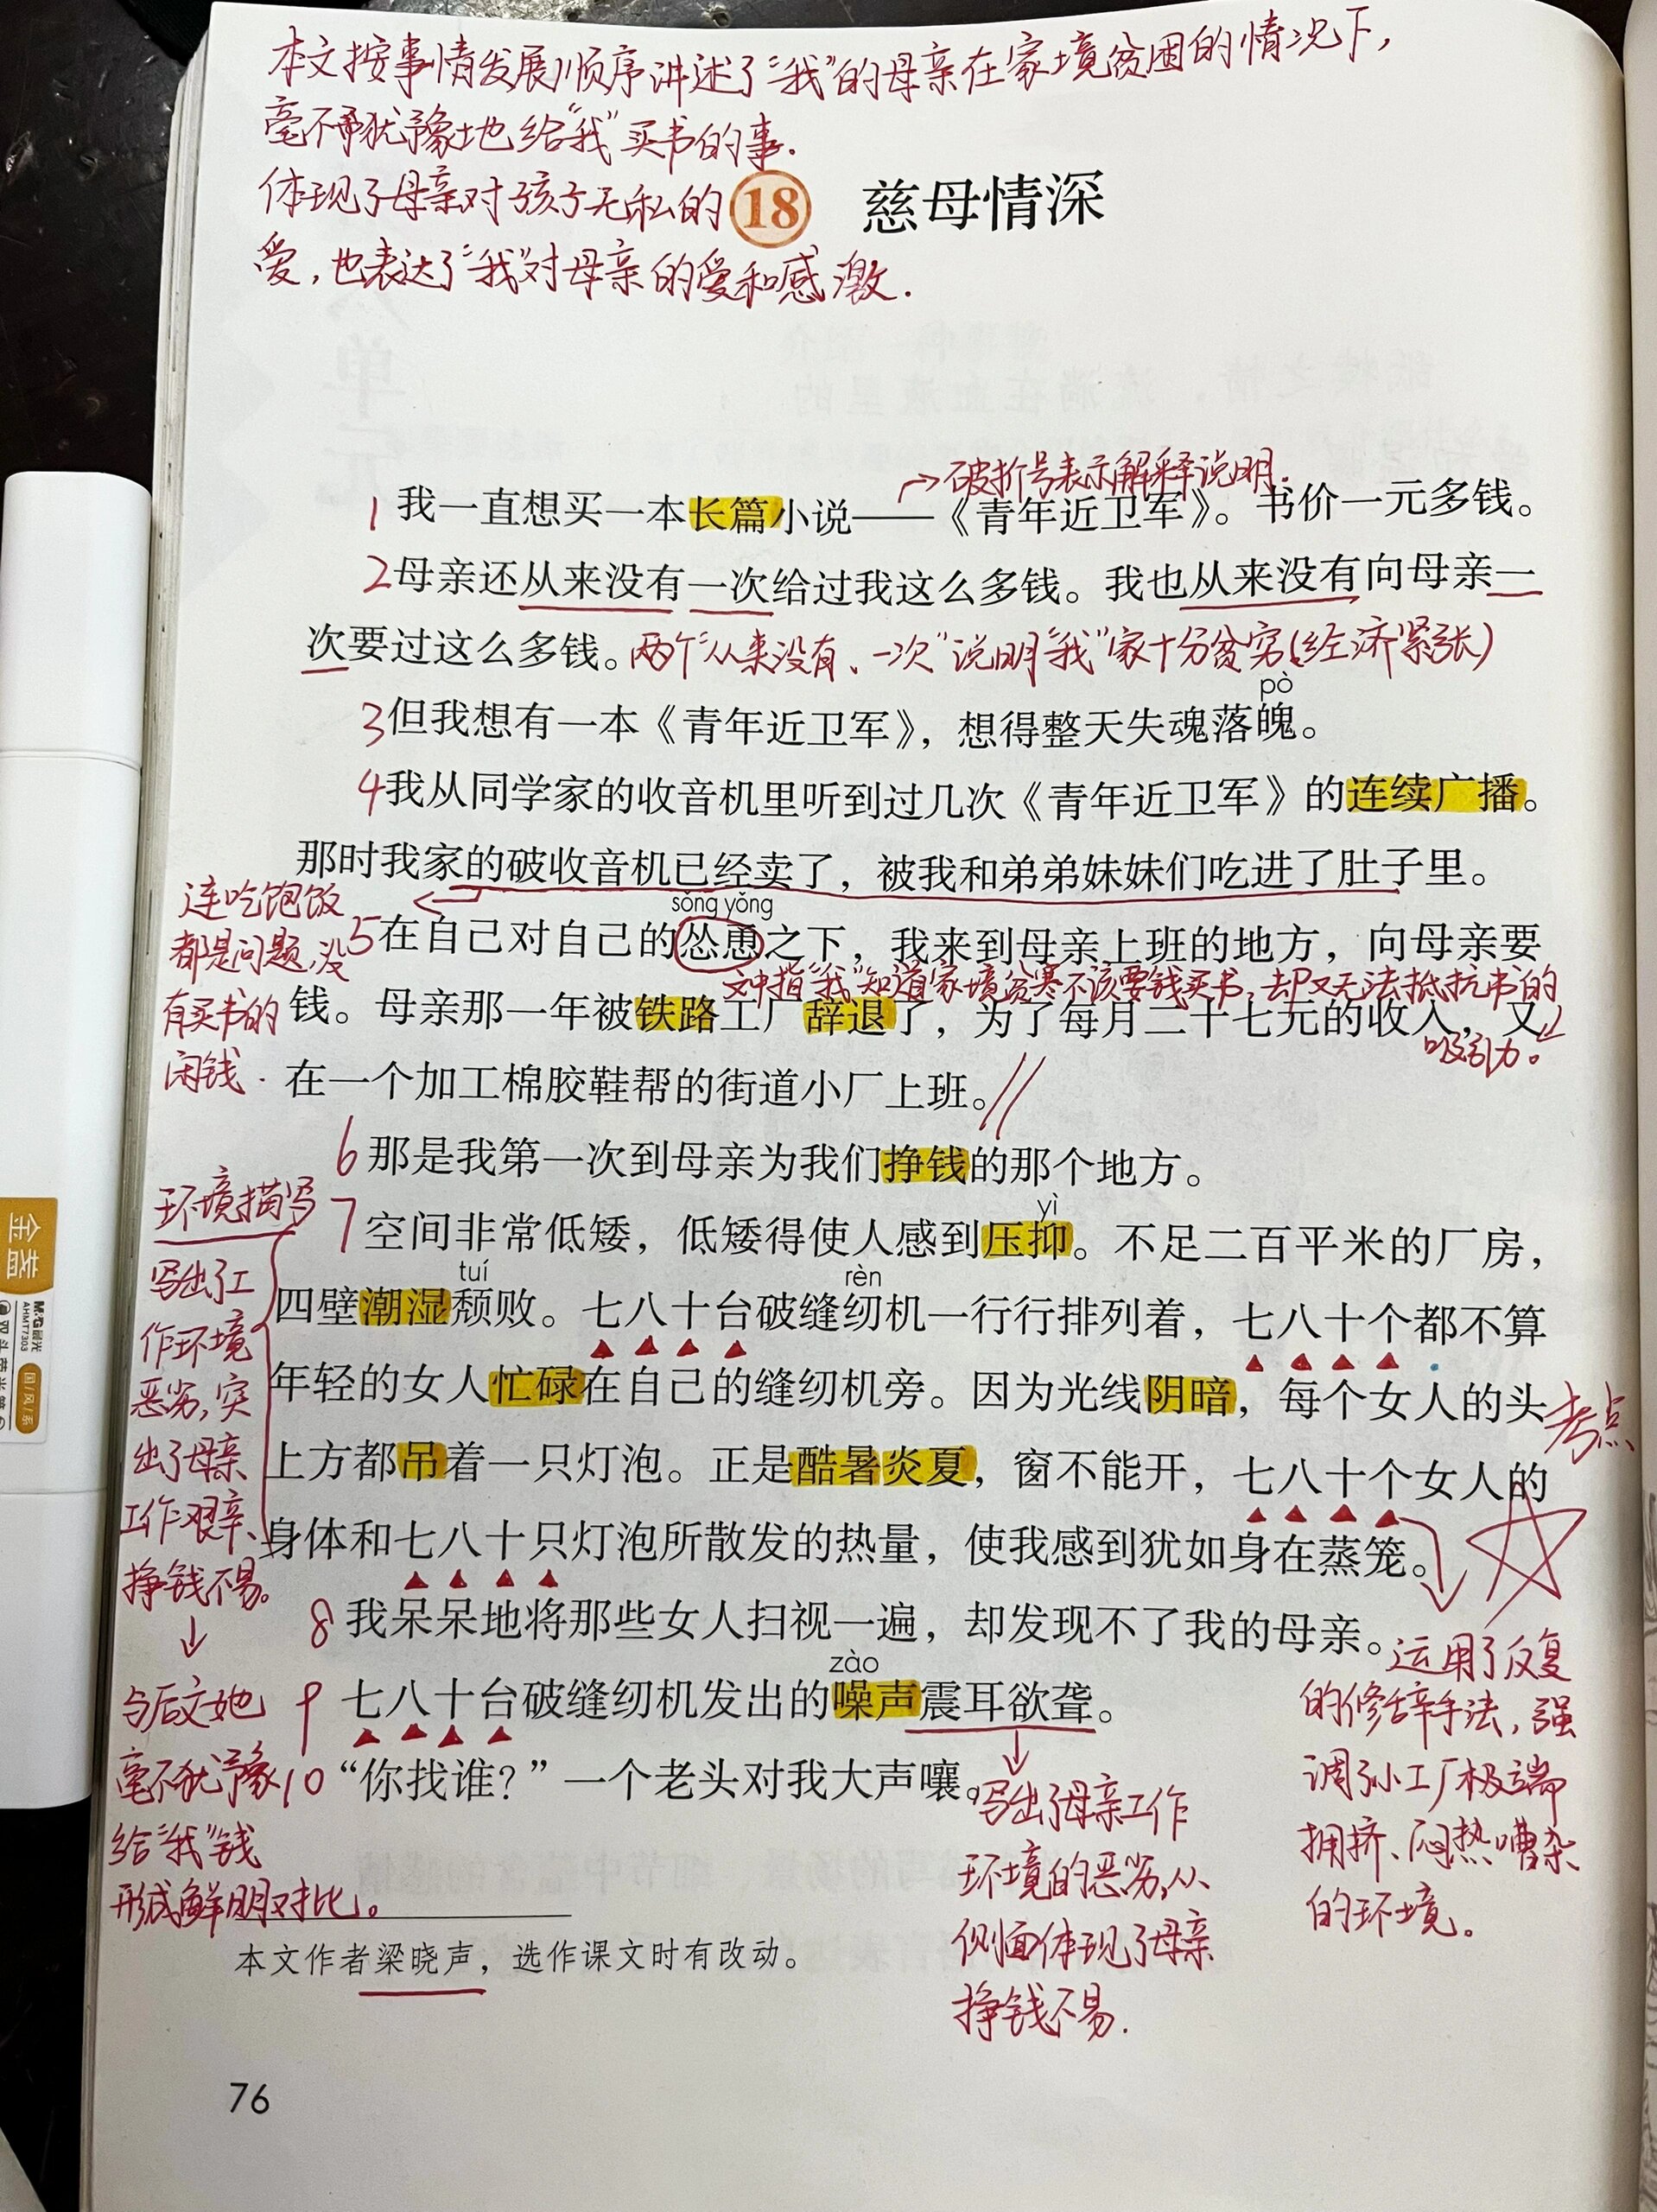 本文按事情发展顺序讲述了“我”的母亲在家境贫困的情况下，
毫不犹豫地给“我”买书的事.
体现了母亲对孩子无私的
爱，也表达了“我”对母亲的爱和感激.
18 慈母情深
→破折号表示解释说明.
1 我一直想买一本长篇小说——《青年近卫军》。书价一元多钱。
2 母亲还从来没有一次给过我这么多钱。我也从来没有向母亲一
次要过这么多钱。两个“从来没有、一次”说明“我”家十分贫穷(经济紧张)
pò
3 但我想有一本《青年近卫军》，想得整天失魂落魄。
4 我从同学家的收音机里听到过几次《青年近卫军》的连续广播。
那时我家的破收音机已经卖了，被我和弟弟妹妹们吃进了肚子里。
连吃饱饭
都是问题,没
有买书的
闲钱.
sǒng yǒng
5 在自己对自己的怂恿之下，我来到母亲上班的地方，向母亲要
文中指“我”知道家境贫寒不该要钱买书,却又无法抵抗书的
吸引力。
钱。母亲那一年被铁路工厂辞退了，为了每月二十七元的收入，又
在一个加工棉胶鞋帮的街道小厂上班。//
6 那是我第一次到母亲为我们挣钱的那个地方。
yì
7 空间非常低矮，低矮得使人感到压抑。不足二百平米的厂房，
tuí rèn
四壁潮湿颓败。七八十台破缝纫机一行行排列着，七八十个都不算
年轻的女人忙碌在自己的缝纫机旁。因为光线阴暗，每个女人的头
上方都吊着一只灯泡。正是酷暑炎夏，窗不能开，七八十个女人的
身体和七八十只灯泡所散发的热量，使我感到犹如身在蒸笼。
考点
环境描写
写出了工
作环境
恶劣,突
出了母亲
工作艰辛、
挣钱不易。
↓
与后文她
毫不犹豫
给“我”钱
形成鲜明对比。
8 我呆呆地将那些女人扫视一遍，却发现不了我的母亲。
zào
9 七八十台破缝纫机发出的噪声震耳欲聋。
10 “你找谁？”一个老头对我大声嚷。
运用了反复
的修辞手法，强
调了小工厂极端
拥挤、闷热嘈杂
的环境。
写出了母亲工作
环境的恶劣,从
侧面体现了母亲
挣钱不易.
本文作者梁晓声，选作课文时有改动。
76
金盏
M&G晨光
AHM17303
国/风/系